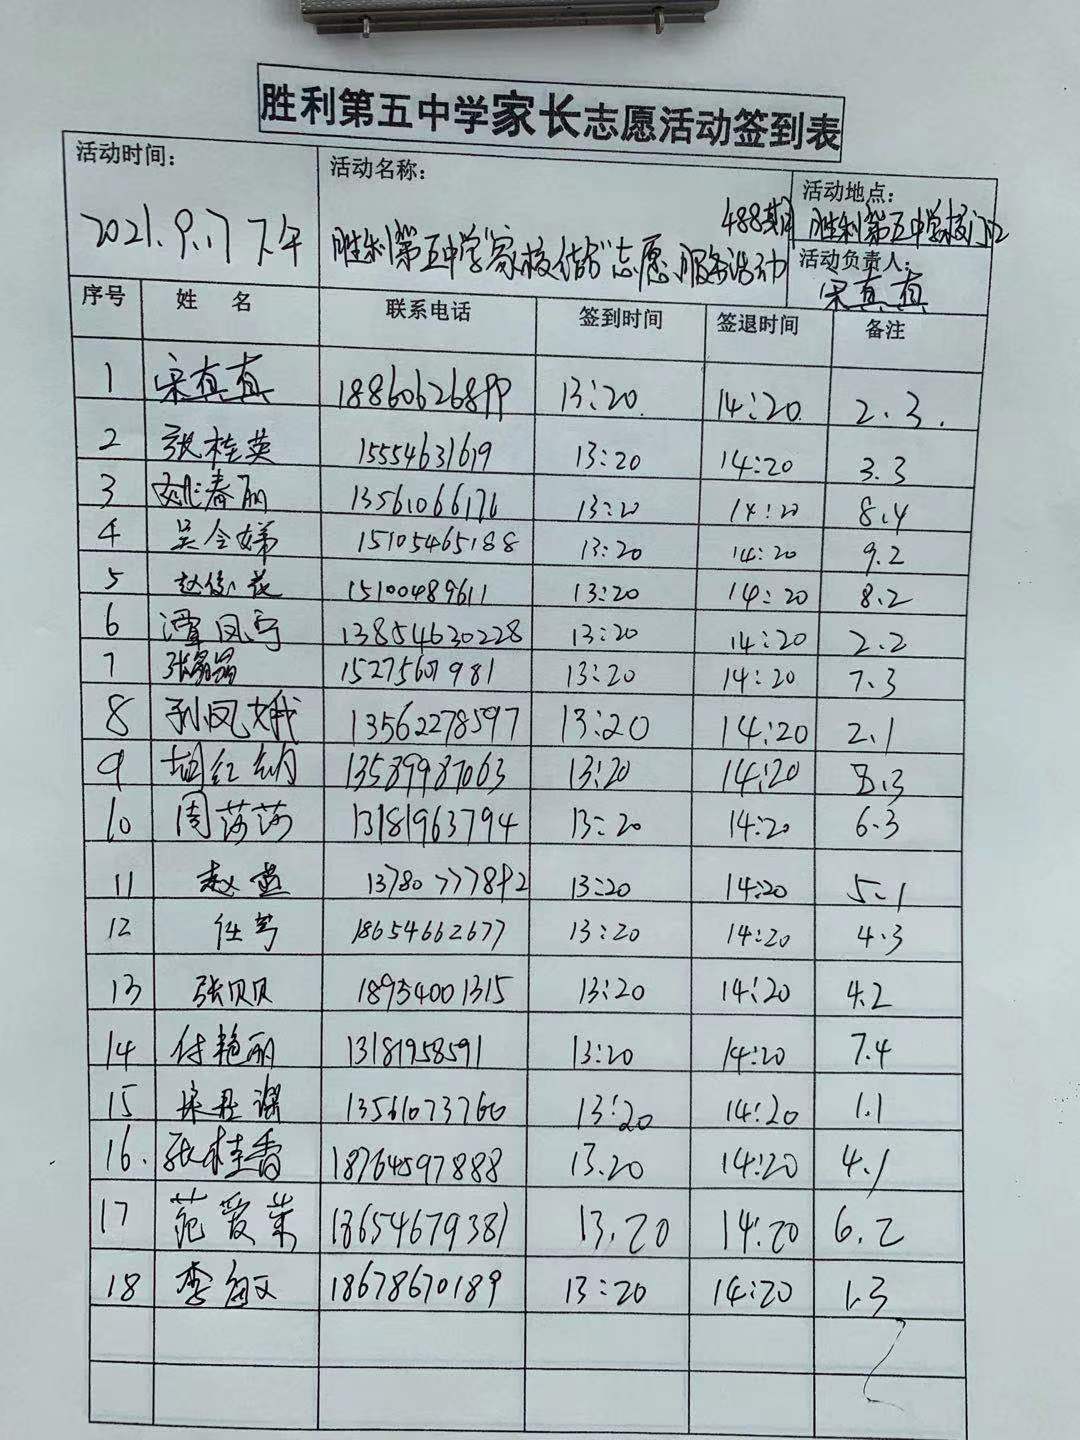 胜利第五中学家长志愿活动签到表
活动时间: 2021.9.17 下午
活动名称: 488期
胜利第五中学"家校结合"志愿服务活动
活动地点: 胜利第五中学校门口
活动负责人: 宋真真
序号 姓名 联系电话 签到时间 签退时间 备注
1 宋真真 188606268 13:20 14:20 2.3.
2 张桂英 15554631619 13:20 14:20 3.3
3 姚春丽 13561066176 13:20 14:20 8.4
4 吴令娣 15105465188 13:20 14:20 9.2
5 赵俊花 15100489611 13:20 14:20 8.2
6 潭凤宁 13854630228 13:20 14:20 2.2
7 张 15275607981 13:20 14:20 7.3
8 孙凤娥 13562278597 13:20 14:20 2.1
9 胡红纳 13589987063 13:20 14:20 8.3
10 周莎莎 13181963794 13:20 14:20 6.3
11 赵 13780777892 13:20 14:20 5.1
12 任 18654662677 13:20 14:20 4.3
13 张贝贝 18954001315 13:20 14:20 4.2
14 付艳丽 13181958591 13:20 14:20 7.4
15 13561073760 13:20 14:20 1.1
16. 张桂香 18764597888 13.20 14:20 4.1
17 范爱菜 18654679381 13.20 14:20 6.2
18 李敏 18678670189 13:20 14:20 1.3